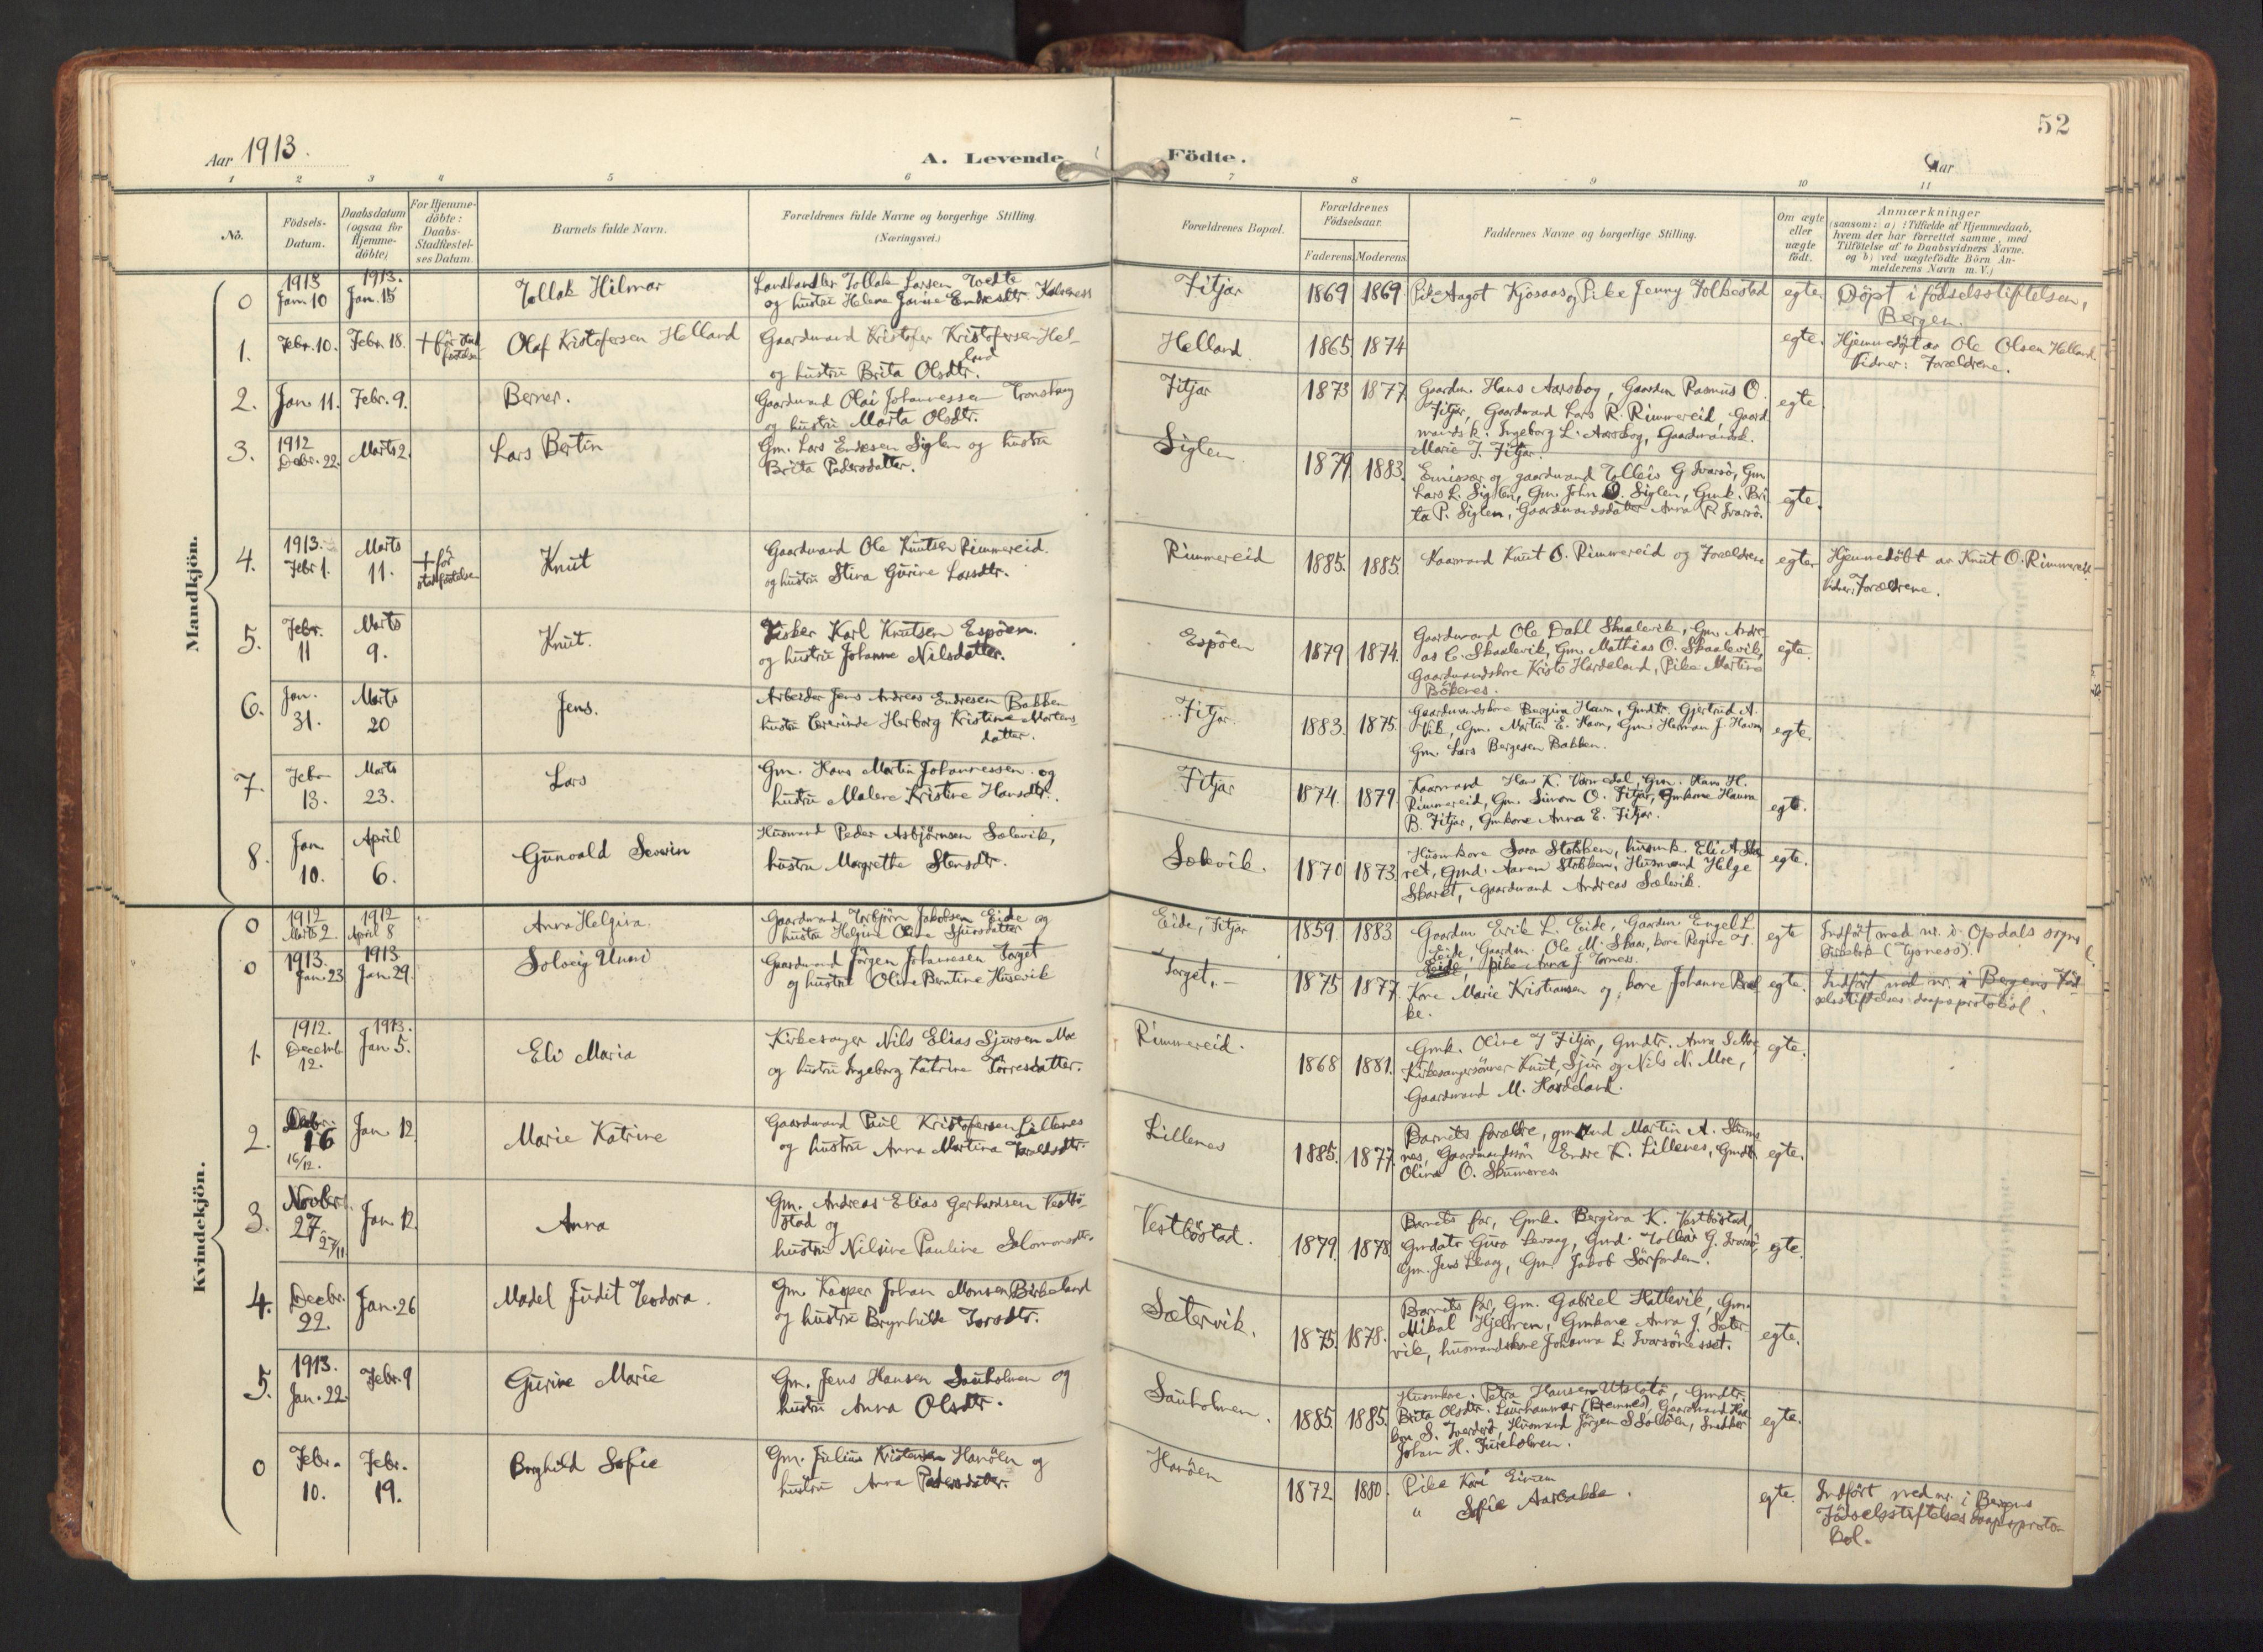 52
Aar 1913.
A. Levende Födte.
Aar
1 2 3 4 5 6 7 8 9 10 11
No.
Födsels-Datum.
Daabsdatum (ogsaa for Hjemme-döbte)
For Hjemme-döbte: Daabs-Stadfæstel-ses Datum.
Barnets fulde Navn.
Forældrenes fulde Navne og borgerlige Stilling.
(Næringsvei.)
Forældrenes Bopæl.
Forældrenes Födselsaar.
Faderens Moderens
Faddernes Navne og borgerlige Stilling.
Om ægte eller uægte födt.
Anmærkninger
(saasom: a) i Tilfælde af Hjemmedaab,
hvem der har forrettet samme, med
Tilföielse af to Daabsvidners Navne.
og b) ved uægtefödte Börn An-
melderens Navn m. V.)
Mandkjön.
0 1913 Jan. 10 1913. Jan. 15
Tollak Hilmar
Landhandler Tollak Larsen
og hustru Helene Janine Endresdtr.
Fitjar
1869 1869
Pike Aagot Kjosaas og Pike Jenny Tolkestad
egte.
Döpt i födselsstiftelsen,
Bergen.
1. Febr. 10. Febr. 18. + för stad
festelse
Olaf Kristofersen Helland
Gaardmand Kristofer Kristofersen Hel-
land
og hustru Brita Olsdtr.
Helland
1865 1874
egte.
Hjemmedöpt av Ole Olsen Helland.
Vidner: Forældrene.
2. Jan. 11. Febr. 9.
Berner.
Gaardmand Olai Johannessen
og hustru Marta Olsdtr.
Fitjar
1873 1877
Gaardm. Hans Aarskog, Gaardm Rasmus O.
Fitjar, Gaardmand Lars R. Rimmereid, Gaard
mands k. Ingeborg L. Aarskog, Gaardmandsk.
Marie J. Fitjar.
egte.
3. 1912 Decbr. 22. Marts 2.
Lars Bertin
Gm. Lars Endresen Siglen og hustru
Brita Pedersdatter.
Siglen
1879 1883.
Emissær og gaardmand Tolleiv G Ivarsö, Gm
Lars L. Siglen, Gm. John O. Siglen, Gmk. Bri
ta P. Siglen, Gaardmandsdatter Anna R. Ivarsö.
egte.
4. 1913. Febr 1. Marts 11. + för
stadfestelsen
Knut
Gaardmand Ole Knutsen Rimmereid.
og hustru Stina Gurine Larsdtr.
Rimmereid
1885. 1885.
Kaarmand Knut O. Rimmereid og Forældrene
egte.
Hjemmedöbt av Knut O. Rimmereid.
Vidner: Forældrene.
5. Febr. 11 Marts 9.
Knut.
Fisker Karl Knutsen Espöen.
og hustru Johanne Nilsdatter.
Espöen
1879 1874.
Gaardmand Ole Dahl Skaalevik, Gm. Andre-
as C. Skaalevik, Gm. Mathias O. Skaalevik,
Gaardmandskone Hardeland, Pike Martine
Bökenes.
egte.
6. Jan. 31. Marts 20
Jens.
Arbeider Jens Andreas Endresen Bakken
hustru Herborg Kristine Martens-
datter.
Fitjar.
1883. 1875.
Gaardmandskone Bergina Havn, Gmdtr. Gjertrud A.
Vik, Gm. Martin E. Havn, Gm. Herman J. Havn
Gm. Lars Bergesen Bakken.
egte.
7. Febr 13. Marts 23.
Lars
Gm. Hans Martin Johannessen og
hustru Malene Kristine Hansdtr.
Fitjar
1874. 1879.
Kaarmand Hans K. Gm. Hans H.
Rimmereid, Gm. Simon O. Fitjar, Gmkone
B. Fitjar, Gmkone Anna E. Fitjar.
egte.
8. Jan. 10. April 6.
Gunvald Severin
Husmand Peder Asbjörnsen Sælevik,
hustru Margrethe Stensdtr.
Sælevik.
1870 1873.
Husmkone Sara Stokken, husmk. Eli A Ska
ret, Gmd. Stokken, Husmand Helge
Skaret, Gaardmand Andreas Sælevik.
egte.
Kvindekjön.
0 1912 Marts 2. 1912 April 8
Anna Helgina.
Gaardmand Torbjörn Jakobsen Eide og
hustru Helgine Oline Sjursdatter
Eide, Fitjar
1859. 1883
Gaardm Erik L. Eide, Gaardm Engel L
Eide, Gaardm. Ole M. Skaar, kone Regine J.
Eide, pike Anna J.
egte
Indfört med nr. i Opdals sogns
kirkebok (Tysness).
0 1913. Jan. 23 1913 Jan. 29.
Solveig Unni
Gaardmand Jörgen Johannesen Torget
og hustru Oline Berntine Husevik
Torget.
1875 1877.
Kone Marie Kristiansen og kone Johanne Bræk
ke.
egte.
Indfört med nr. i Bergens Föd-
selsstiftelses daapsprotokol.
1. 1912. Decemb. 12. 1913. Jan 5.
Eli Maria
Kirkesanger Nils Elias Sjursen Moe
og hustru Ingeborg Katrine Torresdatter.
Rimmereid.
1868 1881.
Gmk. Oline J Fitjar, Gmdtr. Anna S. Moe,
Kirkesangersönner Knut, Sjur og Nils N. Moe,
Gaardmand M. Hardeland.
egte.
2. Decbr. 16 16/12. Jan 12
Marie Katrine
Gaardmand Paul Kristofersen Lillenes
og hustru Anna Martina
Lillenes
1885. 1877.
Barnets forældre, gmmand Martin A.
nes, Gaardmandssön Endre K. Lillenes, Gmdtr
Olina O. Skumsnes.
egte.
3. Novbr. 27. 27/11 Jan 12.
Anna
Gm. Andreas Elias Gerhardsen Vestbö-
stad og
hustru Nilsine Pauline Salomonsdtr.
Vestböstad.
1879. 1878
Barnets far, Gmk. Bergina K. Vestböstad,
Gmdatr Guro Levaag, Gmd. Tolleiv G. Ivarsö,
Gm. Jens Levaag, Gm. Jakob Sörfonden.
egte.
4. Decbr. 22. Jan. 26
Madel Judit Teodora.
Gm. Kasper Johan Monsen Birkeland
og hustru Brynhilde Torsdtr.
Sætervik.
1875. 1878.
Barnets far, Gm. Gabriel Hatlevik, Gm.
Mikal Hjelmen, Gmkone Anna J. Sæter
vik, husmandskone Johanna L Ivarsönesset.
egte.
5. 1913. Jan. 22. Febr. 9
Gurine Marie
Gm. Jens Hansen Sauholmen og
hustru Anna Olsdtr.
Sauholmen.
1885. 1885.
Husmkone. Petra Hansen Utslotö, Gmdtr.
Brita Olsdtr. (Bremnes), Gaardmand
S. Husmand Jörgen S Snedker
Johan H.
egte.
0 Febr. 10. Febr. 19.
Borghild Sofie
Gm. Julius Kristensen Hanöen og
hustru Anna Pedersdatter.
Hanöen
1872 1880.
Pike Kari
" Sofie Aarbakke.
egte.
Indfört med nr. i Bergens
Födselsstiftelses daapsproto-
kol.